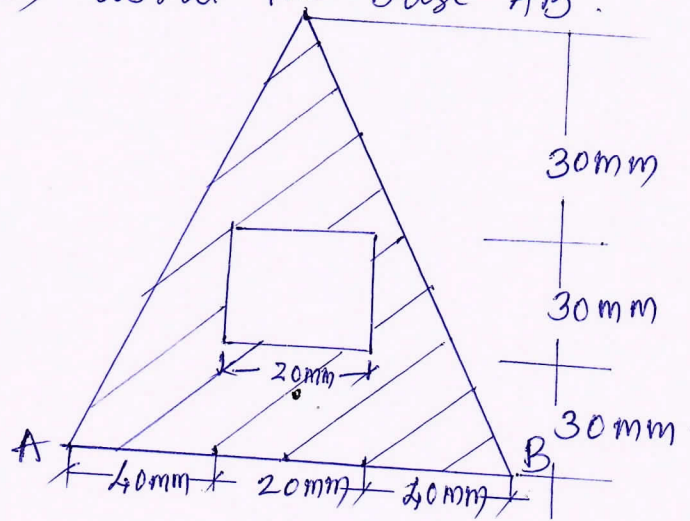 base AB.
30mm
30mm
20mm
30mm
A
B
40mm 20mm 40mm